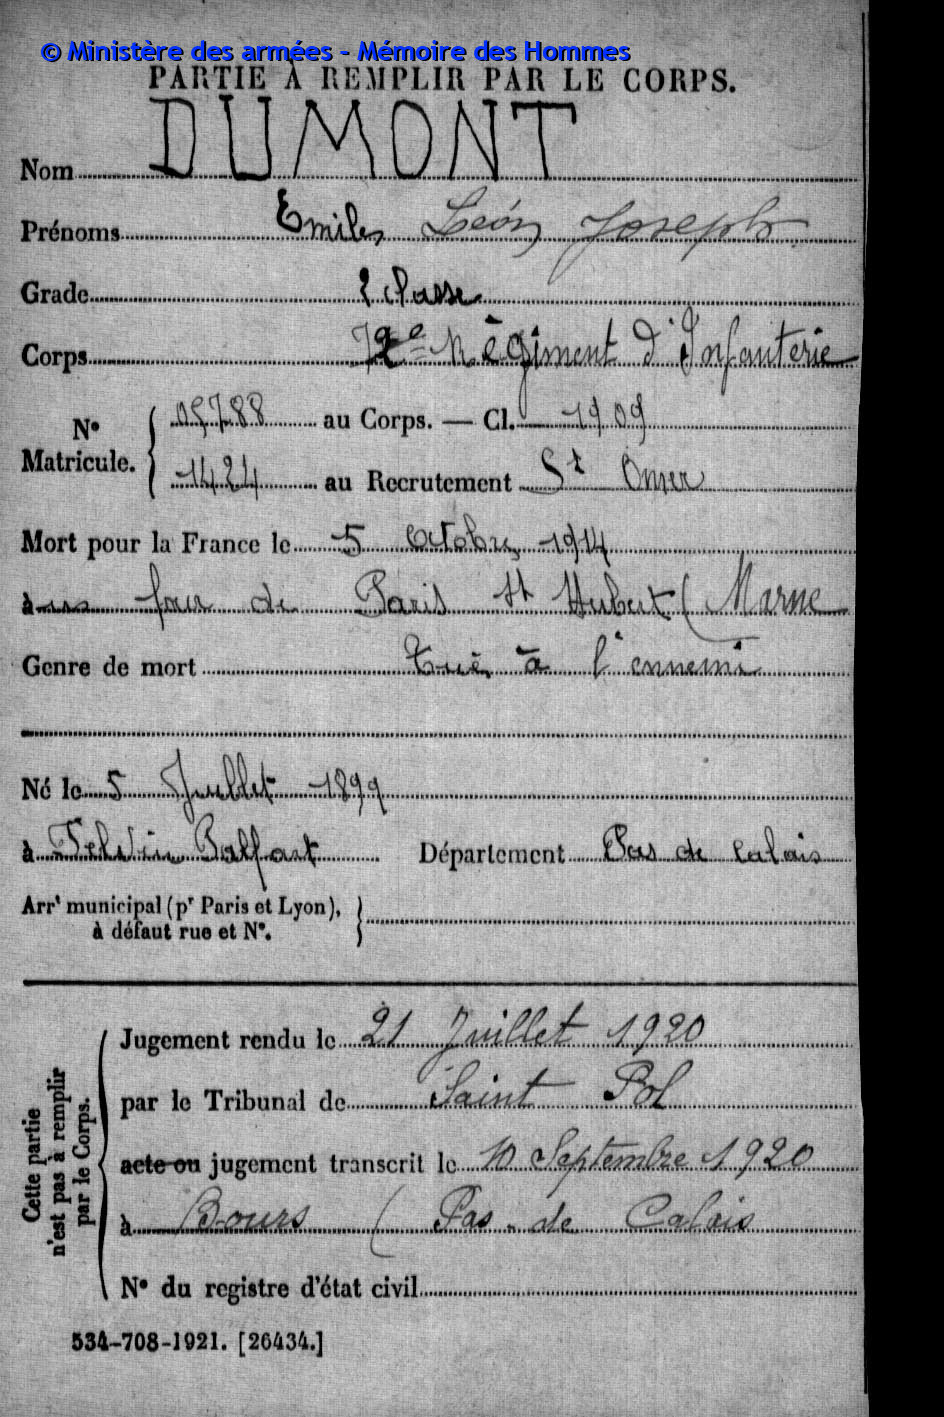 © Ministère des armées - Mémoire des Hommes
PARTIE À REMPLIR PAR LE CORPS.
Nom DUMONT
Prénoms Emile Léon Joseph
Grade 2 Classe
Corps 72e Régiment d'Infanterie
Nº Matricule. 05788 au Corps. — Cl. 1909
1424 au Recrutement St Omer
Mort pour la France le 5 Octobre 1914
à four de Paris St Hubert (Marne
Genre de mort Tué à l'ennemi
Né le 5 Juillet 1899
à Palfart Département Pas de Calais
Arrt municipal (pr Paris et Lyon),
à défaut rue et Nº.
Cette partie
n'est pas à remplir
par le Corps.
Jugement rendu le 21 Juillet 1920
par le Tribunal de Saint Pol
acte ou jugement transcrit le 10 Septembre 1920
à Bours (Pas-de Calais
Nº du registre d'état civil
534-708-1921. [26434.]